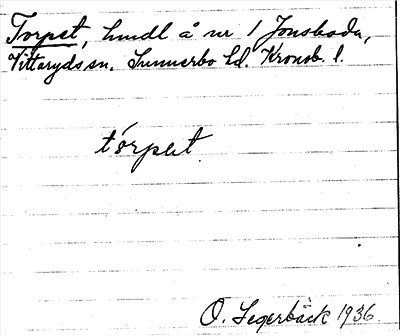 Torpet, hmdl å nr 1 Jonsboda,
Vittaryds sn. Sunnerbo hd. Kronob. l.
tórpet.
O. Segerbäck 1936.